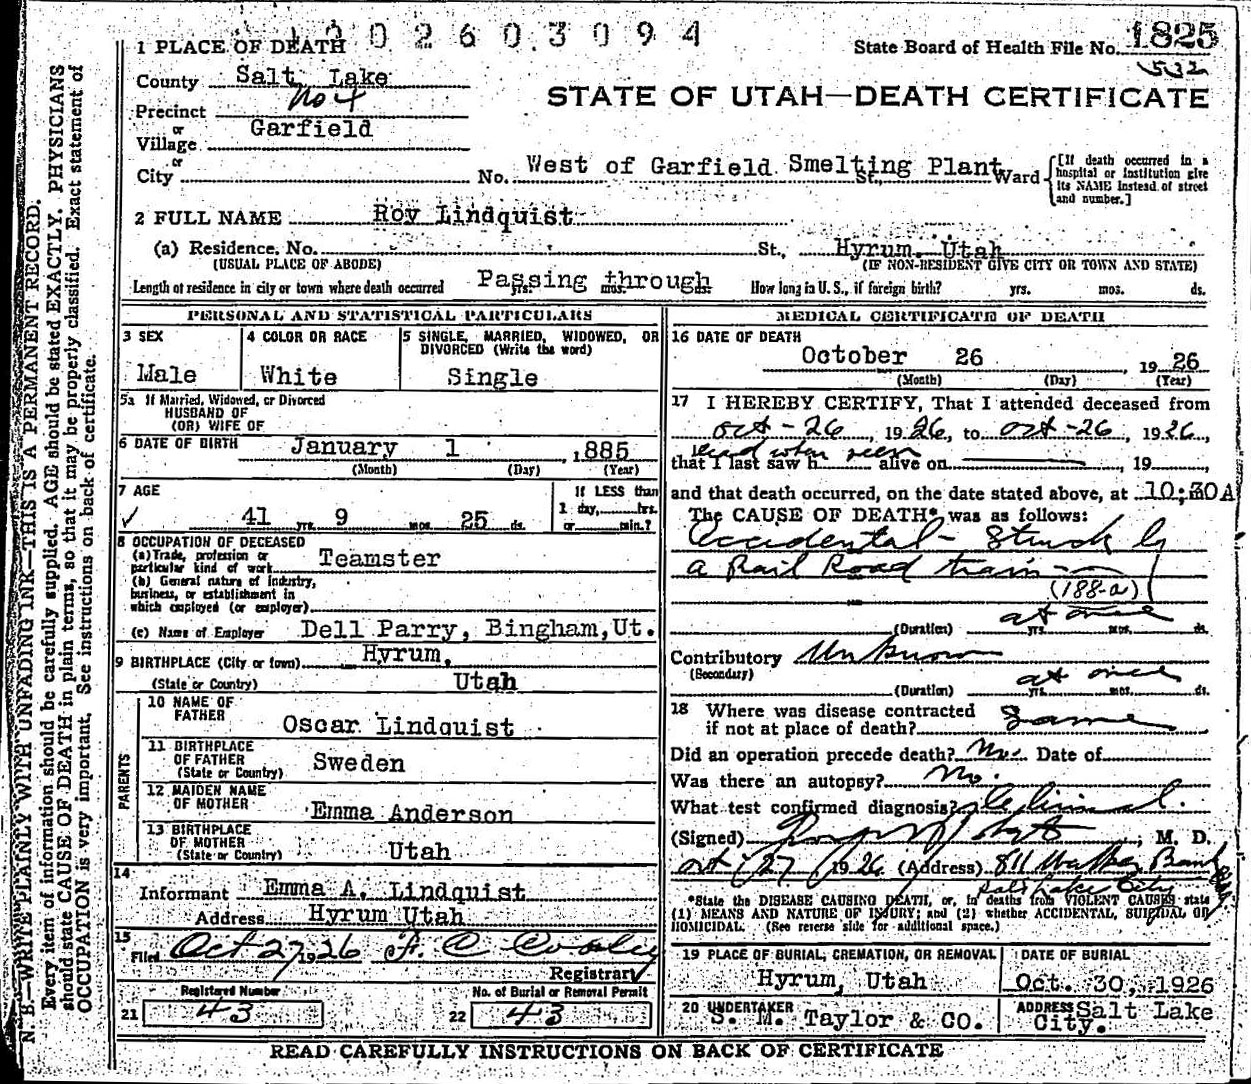 202603094
State Board of Health File No. 1825
532
STATE OF UTAH—DEATH CERTIFICATE
1 PLACE OF DEATH
County Salt Lake
Precinct No 4
or
Village Garfield
or
City No. West of Garfield Smelting Plant St., Ward
[If death occurred in a hospital or institution give its NAME instead of street and number.]
2 FULL NAME Roy Lindquist
(a) Residence, No. St., Hyrum, Utah
(USUAL PLACE OF ABODE) (IF NON-RESIDENT GIVE CITY OR TOWN AND STATE)
Length of residence in city or town where death occurred Passing through yrs. mos. ds. How long in U. S., if foreign birth? yrs. mos. ds.
PERSONAL AND STATISTICAL PARTICULARS
3 SEX
Male
4 COLOR OR RACE
White
5 SINGLE, MARRIED, WIDOWED, OR
DIVORCED (Write the word)
Single
5a If Married, Widowed, or Divorced
HUSBAND OF
(OR) WIFE OF
6 DATE OF BIRTH January 1 , 1885
(Month) (Day) (Year)
7 AGE
41 yrs. 9 mos. 25 ds.
If LESS than
1 day, hrs.
or min.?
8 OCCUPATION OF DECEASED
(a) Trade, profession or
particular kind of work Teamster
(b) General nature of industry,
business, or establishment in
which employed (or employer)
(c) Name of Employer Dell Parry, Bingham, Ut.
9 BIRTHPLACE (City or town) Hyrum,
(State or Country) Utah
PARENTS
10 NAME OF
FATHER Oscar Lindquist
11 BIRTHPLACE
OF FATHER
(State or Country) Sweden
12 MAIDEN NAME
OF MOTHER Emma Anderson
13 BIRTHPLACE
OF MOTHER
(State or Country) Utah
14
Informant Emma A. Lindquist
Address Hyrum Utah
15
Filed Oct 27 1926
Registrar
Registered Number
21 43
No. of Burial or Removal Permit
22 43
MEDICAL CERTIFICATE OF DEATH
16 DATE OF DEATH
October 26 , 1926
(Month) (Day) (Year)
17 I HEREBY CERTIFY, That I attended deceased from
Oct - 26, 1926, to Oct - 26, 1926,
dead when seen
that I last saw h alive on , 19 ,
and that death occurred, on the date stated above, at 10:30A
The CAUSE OF DEATH* was as follows:
Accidental - Struck by
a Rail Road train
(188-a)
at once
(Duration) yrs. mos. ds.
Contributory Unknown
(Secondary) at once
(Duration) yrs. mos. ds.
18 Where was disease contracted
if not at place of death? Same
Did an operation precede death? No. Date of
Was there an autopsy? No.
What test confirmed diagnosis? Clinical.
(Signed) , M. D.
Oct 27 1926 (Address) 811 Walker Bank
Salt Lake City
*State the DISEASE CAUSING DEATH, or, in deaths from VIOLENT CAUSES state
(1) MEANS AND NATURE OF INJURY; and (2) whether ACCIDENTAL, SUICIDAL OR
HOMICIDAL. (See reverse side for additional space.)
19 PLACE OF BURIAL, CREMATION, OR REMOVAL
Hyrum, Utah
DATE OF BURIAL
Oct. 30, 1926
20 UNDERTAKER
S. M. Taylor & CO.
ADDRESS Salt Lake
City.
READ CAREFULLY INSTRUCTIONS ON BACK OF CERTIFICATE
N. B.—WRITE PLAINLY WITH UNFADING INK—THIS IS A PERMANENT RECORD.
Every item of information should be carefully supplied. AGE should be stated EXACTLY. PHYSICIANS
should state CAUSE OF DEATH in plain terms, so that it may be properly classified. Exact statement of
OCCUPATION is very important. See instructions on back of certificate.